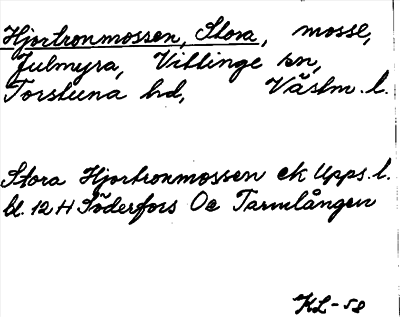 Hjortronmossen, Stora, mosse,
Julmyra, Vittinge sn,
Torstuna hd, Västm. l.
Stora Hjortronmossen ek Upps. l.
bl. 12 H Söderfors Oc Tarmlången
KL-58